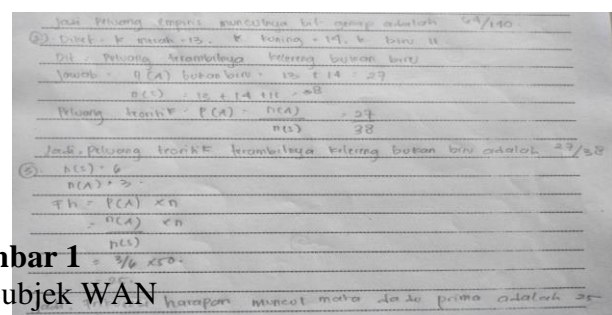 Jadi Peluang empiris munculnya bil. genap adalah 64/140
②. Diket: k merah = 13. k. kuning = 14. k biru 11
Dit: Peluang terambilnya kelereng bukan biru
Jawab: n(A) bukan biru = 13 + 14 = 27
n(s) = 13 + 14 + 11 = 38
Peluang teoritik = P(A) = n(A) / n(s) = 27 / 38
Jadi. Peluang teoritik terambilnya kelereng bukan biru adalah 27/38
③. n(s) = 6
n(A) = 3
Fh = P(A) × n
= n(A) / n(s) × n
= 3/6 × 50.
harapan muncul mata dadu prima adalah 25
mbar 1
ubjek WAN